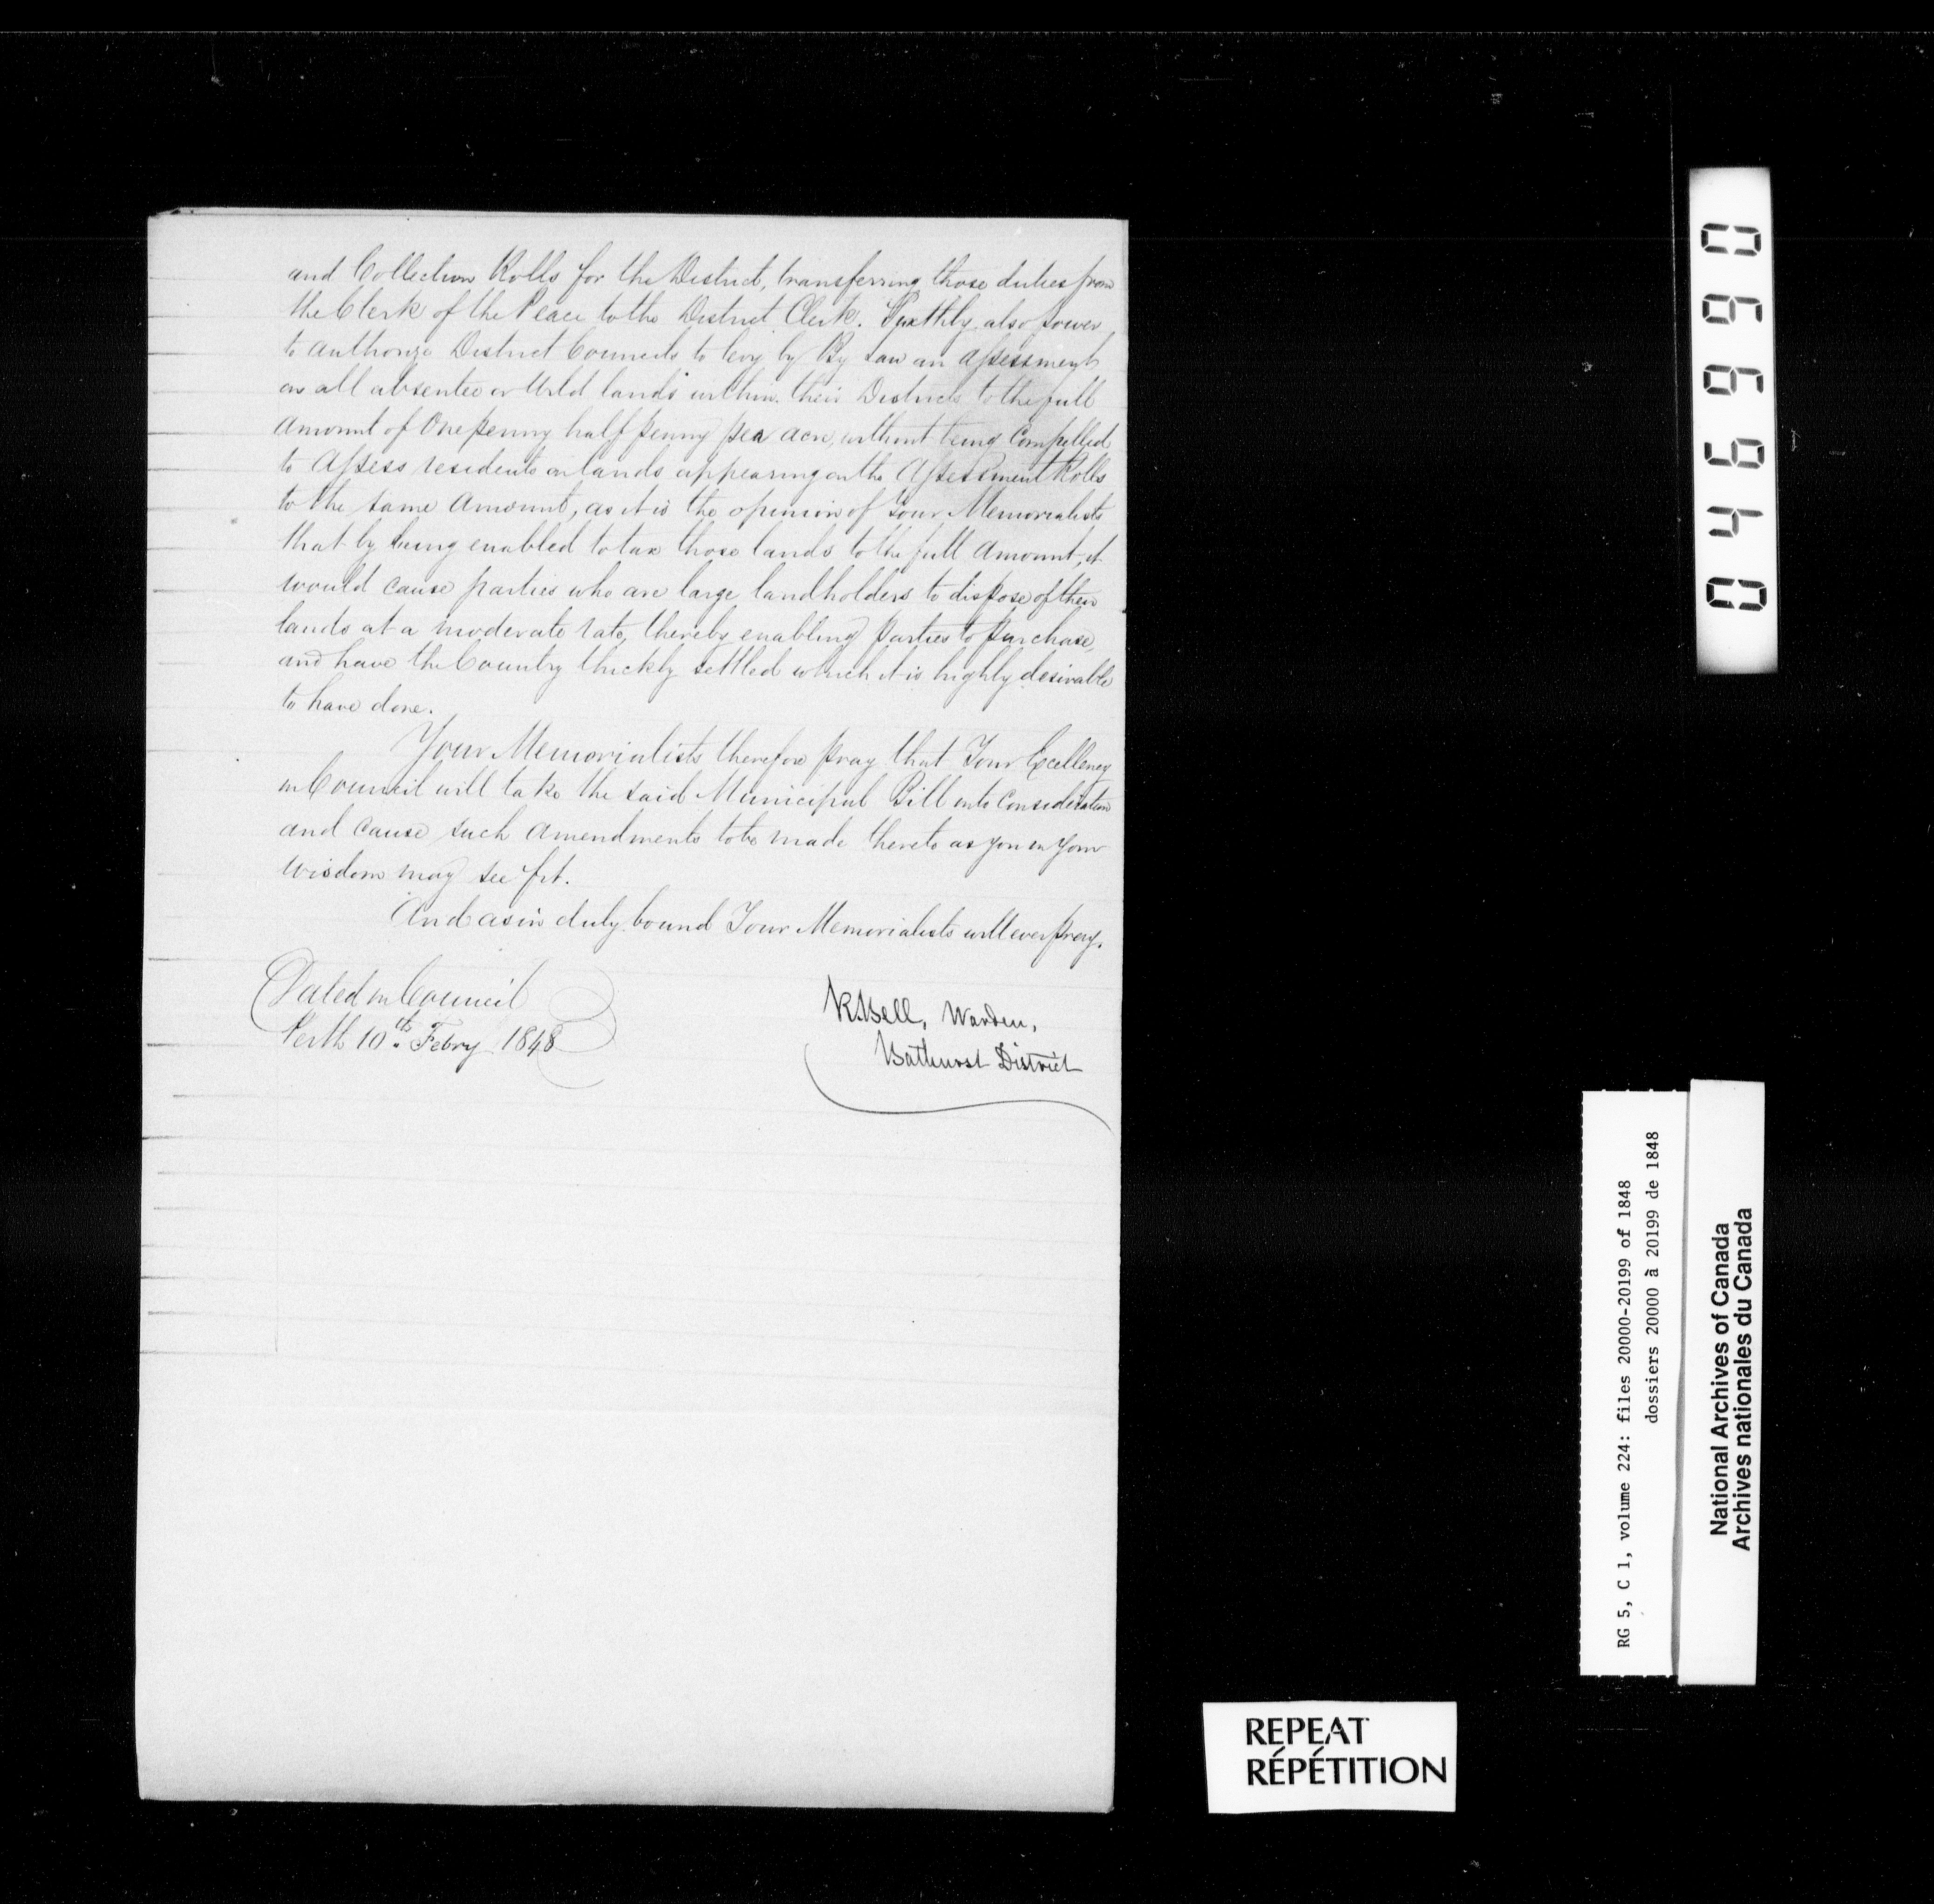 and Collection Rolls for the District, transferring those duties from
the Clerk of the Peace to the District Clerk. Sixthly also power
to authorize District Councils to levy by By Law an assessment
on all absentee or Wild lands within their Districts to the full
amount of One penny half penny per acre, without being Compelled
to Assess residents on lands appearing on the Assessment Rolls
to the same amount, as it is the opinion of Your Memorialists
that by being enabled to tax those lands to the full amount, it
would cause parties who are large landholders to dispose of their
lands at a moderate rate, thereby enabling parties to purchase,
and have the Country thickly settled which it is highly desirable
to have done.
Your Memorialists therefore pray that Your Excellency
in Council will take the said Municipal Bill into Consideration
and cause such amendments to be made thereto as you in your
wisdom may see fit.
And as in duty bound Your Memorialists will ever pray.
Dated in Council
Perth 10th Febry 1848
R. Bell, Warden,
Bathurst District
046990
RG 5, C 1, volume 224: files 20000-20199 of 1848
dossiers 20000 à 20199 de 1848
National Archives of Canada
Archives nationales du Canada
REPEAT
RÉPÉTITION